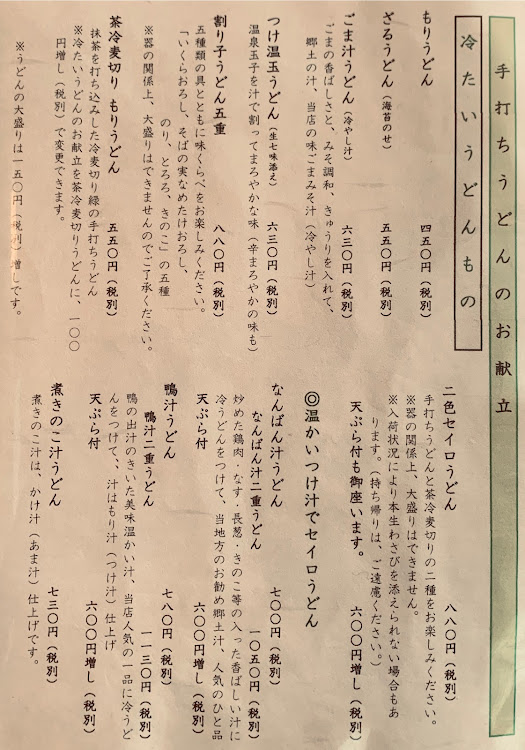 手打ちうどんのお献立
冷たいうどんもの
もりうどん　四五〇円（税別）
ざるうどん（海苔のせ）　五五〇円（税別）
ごま汁うどん（冷やし汁）　六三〇円（税別）
ごまの香ばしさと、みそ調和、きゅうりを入れて、
郷土の汁、当店の味ごまみそ汁（冷やし汁）
つけ温玉うどん（生七味添え）　六三〇円（税別）
温泉玉子を汁で割ってまろやかな味（辛まろやかの味も）
割り子うどん五重　八八〇円（税別）
五種類の具とともに味くらべをお楽しみください。
「いくらおろし、そばの実なめたけおろし、
のり、とろろ、きのこ」の五種
※器の関係上、大盛りはできませんのでご了承ください。
茶冷麦切り もりうどん　五五〇円（税別）
抹茶を打ち込みした冷麦切り緑の手打ちうどん
※冷たいうどんのお献立を茶冷麦切りうどんに、一〇〇
円増し（税別）で変更できます。
※うどんの大盛りは一五〇円（税別）増しです。
二色セイロうどん　八八〇円（税別）
手打ちうどんと茶冷麦切りの二種をお楽しみください。
※器の関係上、大盛りはできません。
※入荷状況により本生わさびを添えられない場合もあ
ります。（持ち帰りは、ご遠慮ください。）
天ぷら付も御座います。　六〇〇円増し（税別）
◎温かいつけ汁でセイロうどん
なんばん汁うどん　七〇〇円（税別）
なんばん汁二重うどん　一〇五〇円（税別）
炒めた鶏肉・なす・長葱・きのこ等の入った香ばしい汁に
冷うどんをつけて、当地方のお勧め郷土汁、人気のひと品
天ぷら付　六〇〇円増し（税別）
鴨汁うどん　七八〇円（税別）
鴨汁二重うどん　一一三〇円（税別）
鴨の出汁のきいた美味温かい汁、当店人気の一品に冷うど
んをつけて、、汁はもり汁（つけ汁）仕上げ
天ぷら付　六〇〇円増し（税別）
煮きのこ汁うどん　七三〇円（税別）
煮きのこ汁は、かけ汁（あま汁）仕上げです。